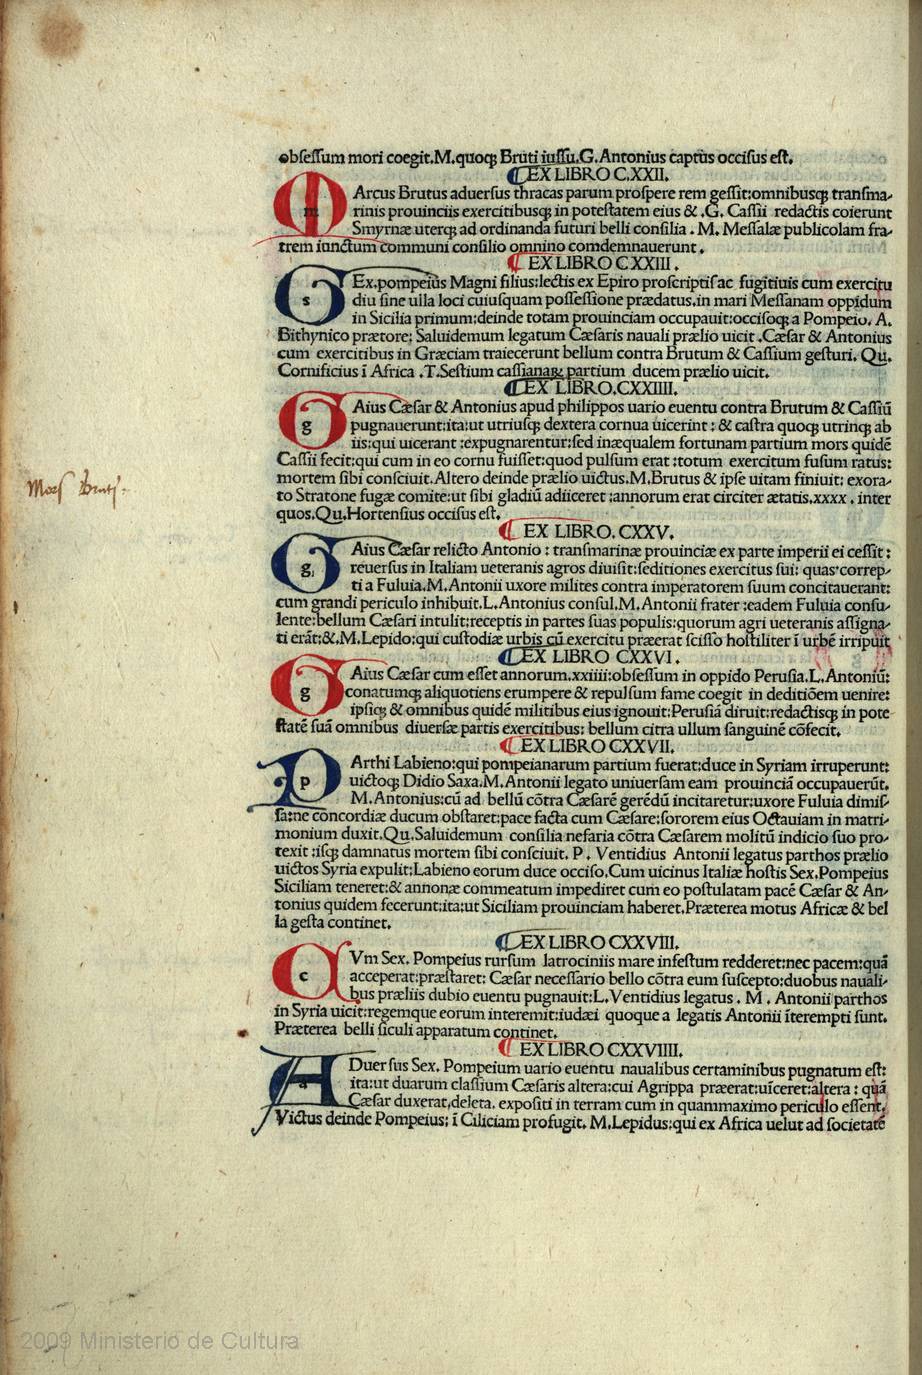 obsessum mori coegit.M.quoqꝫ Bruti iussu.G.Antonius captus occisus est.
¶EX LIBRO C.XXII.
MArcus Brutus aduersus thracas parum prospere rem gessit:omnibusqꝫ transma-
rinis prouinciis exercitibusqꝫ in potestatem eius & .G. Cassii redactis coierunt
Smyrnæ uterqꝫ ad ordinanda futuri belli consilia . M. Messalæ publicolam fra-
trem iunctum communi consilio omnino comdemnauerunt .
¶ EX LIBRO CXXIII .
SEx.pompeius Magni filius:lectis ex Epiro proscriptis ac fugitiuis cum exercitu
diu sine ulla loci cuiusquam possessione prædatus.in mari Messanam oppidum
in Sicilia primum:deinde totam prouinciam occupauit:occisoqꝫ a Pompeio. A.
Bithynico prætore: Saluidemum legatum Cæsaris nauali prælio uicit .Cæsar & Antonius
cum exercitibus in Græciam traiecerunt bellum contra Brutum & Cassium gesturi. Qu.
Cornificius ī Africa .T.Sestium cassianaꝝ partium ducem prælio uicit.
¶EX LIBRO.CXXIIII.
GAius Cæsar & Antonius apud philippos uario euentu contra Brutum & Cassiū
pugnauerunt:ita:ut utriusqꝫ dextera cornua uicerint : & castra quoqꝫ utrinqꝫ ab
iis:qui uicerant :expugnarentur:sed inæqualem fortunam partium mors quidē
Cassii fecit:qui cum in eo cornu fuisset:quod pulsum erat :totum exercitum fusum ratus:
mortem sibi consciuit. Altero deinde prælio uictus.M.Brutus & ipse uitam finiuit: exora-
to Stratone fugæ comite:ut sibi gladiū adiiceret :annorum erat circiter ætatis.xxxx . inter
quos.Qu.Hortensius occisus est.
¶ EX LIBRO. CXXV.
GAius Cæsar relicto Antonio : transmarinæ prouinciæ ex parte imperii ei cessit :
reuersus in Italiam ueteranis agros diuisit:seditiones exercitus sui: quas correp-
ti a Fuluia.M.Antonii uxore milites contra imperatorem suum concitauerant:
cum grandi periculo inhibuit.L.Antonius consul.M.Antonii frater :eadem Fuluia consu-
lente:bellum Cæsari intulit:receptis in partes suas populis:quorum agri ueteranis assigna-
ti erāt:&.M.Lepido:qui custodiæ urbis cū exercitu præerat scisso hostiliter ī urbē irripuit
¶EX LIBRO CXXVI .
GAius Cæsar cum esset annorum.xxiiii:obsessum in oppido Perusia.L.Antoniū:
conatumqꝫ aliquotiens erumpere & repulsum fame coegit in deditiōem uenire:
ipsiqꝫ & omnibus quidē militibus eius ignouit:Perusiā diruit:redactisqꝫ in pote
statē suā omnibus diuersæ partis exercitibus: bellum citra ullum sanguinē cōfecit.
¶EX LIBRO CXXVII.
PArthi Labieno:qui pompeianarum partium fuerat:duce in Syriam irruperunt:
uictoqꝫ Didio Saxa.M.Antonii legato uniuersam eam prouinciā occupauerūt.
M.Antonius:cū ad bellū cōtra Cæsarē gerēdū incitaretur:uxore Fuluia dimis-
sa:ne concordiæ ducum obstaret:pace facta cum Cæsare:sororem eius Octauiam in matri-
monium duxit.Qu.Saluidemum consilia nefaria cōtra Cæsarem molitū indicio suo pro-
texit :isqꝫ damnatus mortem sibi consciuit. P . Ventidius Antonii legatus parthos prælio
uictos Syria expulit:Labieno eorum duce occiso.Cum uicinus Italiæ hostis Sex.Pompeius
Siciliam teneret:& annonæ commeatum impediret cum eo postulatam pacē Cæsar & An-
tonius quidem fecerunt:ita:ut Siciliam prouinciam haberet.Præterea motus Africæ & bel
la gesta continet.
¶EX LIBRO CXXVIII.
CVm Sex. Pompeius rursum latrociniis mare infestum redderet:nec pacem:quā
acceperat:præstaret: Cæsar necessario bello cōtra eum suscepto:duobus nauali-
bus præliis dubio euentu pugnauit:L.Ventidius legatus . M . Antonii parthos
in Syria uicit:regemque eorum interemit:iudæi quoque a legatis Antonii īterempti sunt.
Præterea belli siculi apparatum continet.
¶ EX LIBRO CXXVIIII.
ADuersus Sex. Pompeium uario euentu naualibus certaminibus pugnatum est:
ita:ut duarum classium Cæsaris altera:cui Agrippa præerat:uīceret:altera : quā
Cæsar duxerat,deleta. expositi in terram cum in quammaximo periculo essent.
Victus deinde Pompeius: ī Ciliciam profugit. M.Lepidus:qui ex Africa uelut ad societatē
Mors Bruti
2009 Ministerio de Cultura